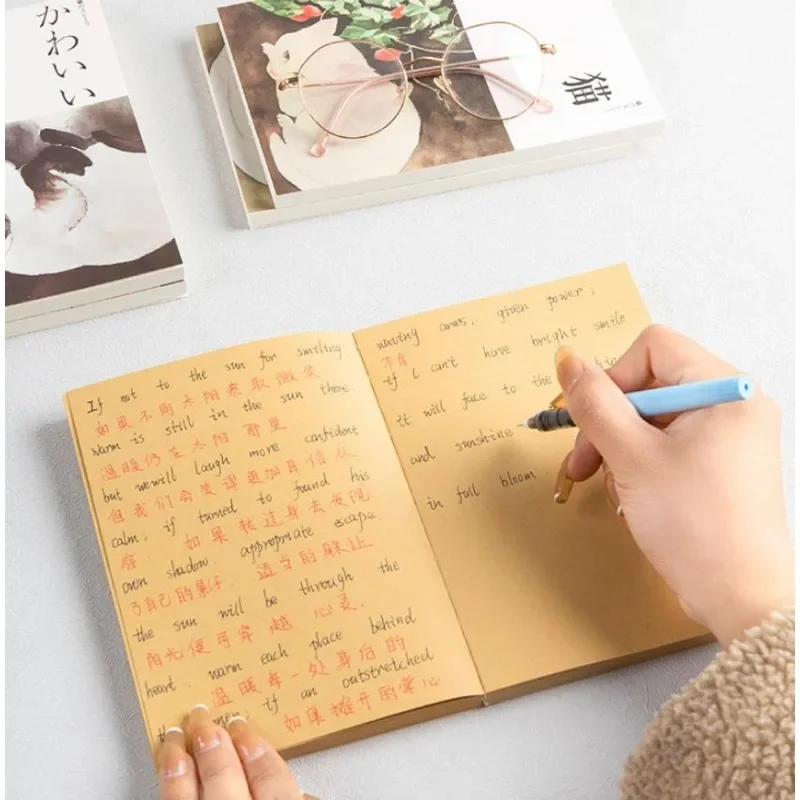 かわいい
猫
If not to the sun for smiling
如果不向太阳来取微笑
warm is still in the sun there.
温暖仍在太阳 那里
but we will laugh more confident
但我们会笑得更加自信从
calm; if turned to found his
容 如果转过身去发现
own shadow. appropriate escape.
了自己的影子. 适当的躲让
the sun will be through the
阳光便可穿越 心灵.
heart. warm each place behind
温暖每一处身后的
if an outstretched
如果摊开的掌心
waving arms, given power;
不有
if i can't have bright smile
it will face to the
and sunshine
in full bloom.